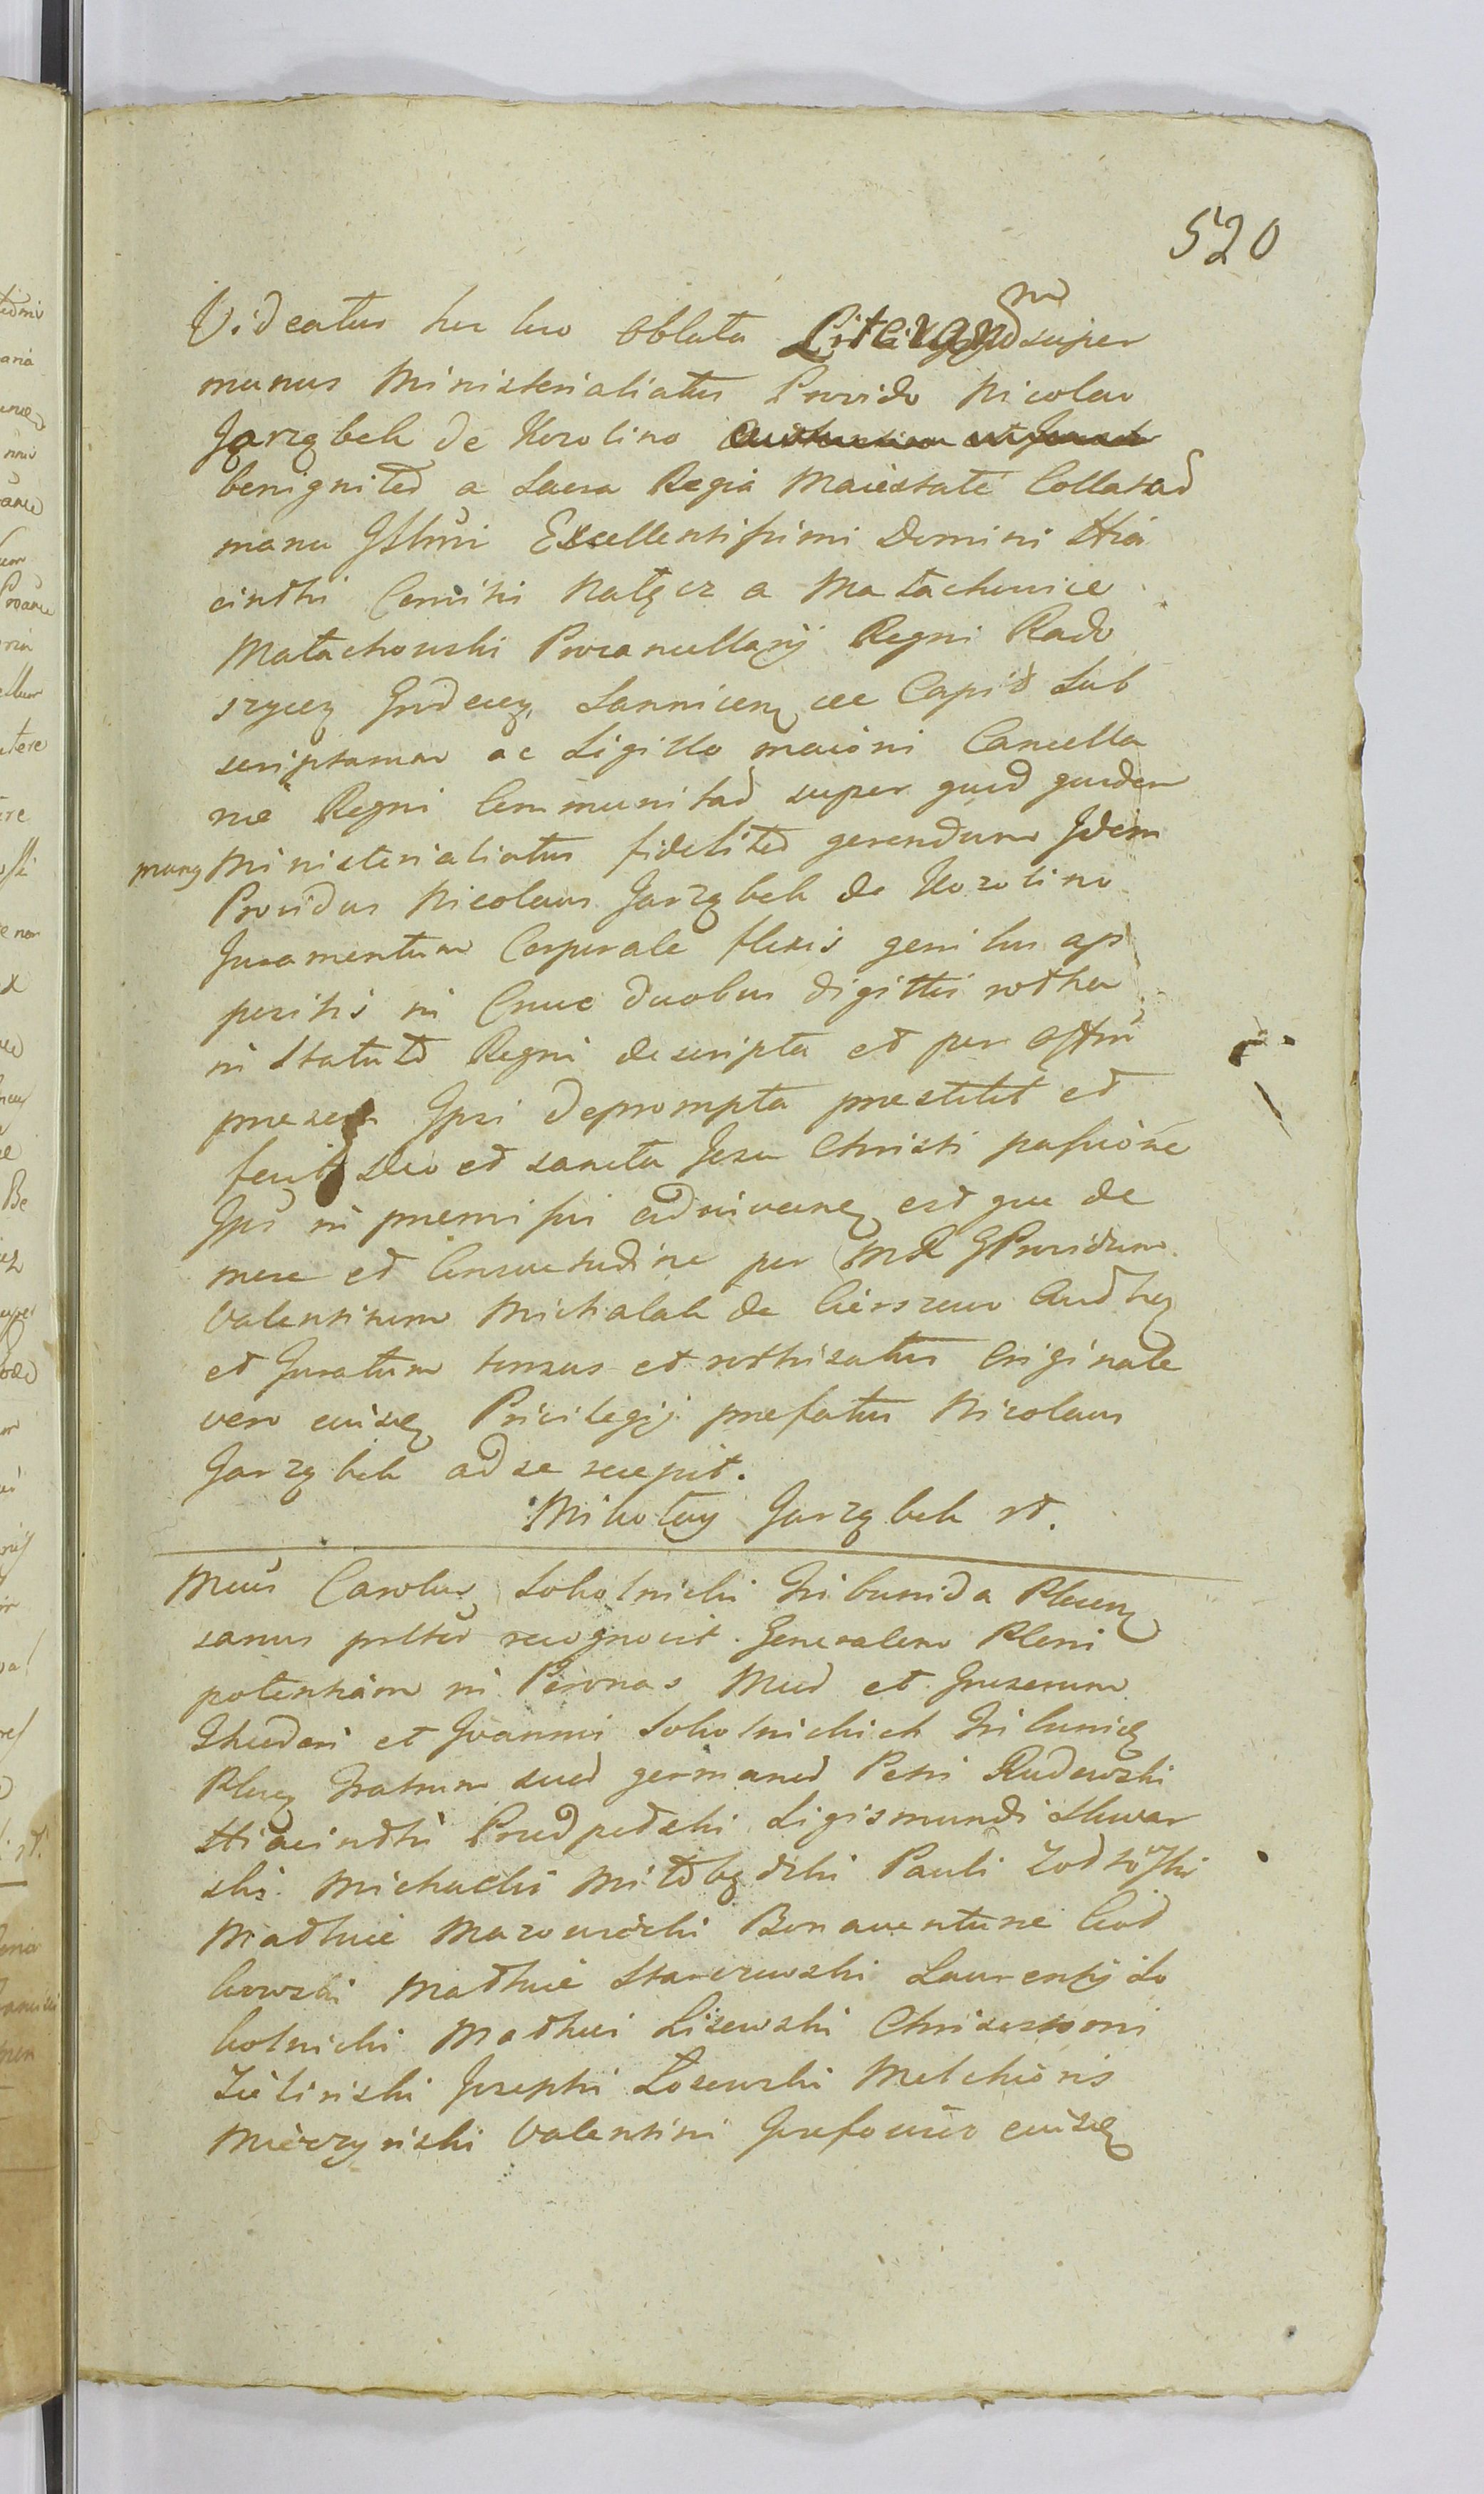 520
Videatur huc loco oblata Literarum super
munus Ministerialiatus Provido Nicolao
Jarząbek de Korolino
benigniter a Sacra Regia Maiestate Collatar
manu Excellentissimi Domini Hia
cinthi Comitis Nałęcz a Małachowice
Małachowski Procancellarij Regni Rado
szycen Grodecen Sannicen Capit Sub
scriptamar ac Sigillo maiori Cancella
riæ Regni Communitar super quod quidem
munus Ministerialiatus fideliter gerendum Idem
Providus Nicolaus Jarząbek de Korolino
Juramentum Corporale flexis genibus ap
positis in Cruce duobus digittis rotha
in Statuto Regni descripta et per Offm
presens Ipsi deprompta prestitit et
fecit Deo et sancta Jesu Christi passione
Ipso in premissis adiuvan estque de
more et Consuetudine per MR GProvidum
Valentinum Michalak de Auth
et Juratum tonsus et rothisatus Originale
vero eiusdem Privilegij prefatus Nicolaus
Jarząbek ad se recepit.
Mikołay Jarząbek rt.
Mcus Carolus Sokolnicki Tribunida Plocen
sanus prlter recognovit Generalem Pleni
potentiam in Personas Mcor et Grosorum
Theodori et Joanni Sokolnickich Tribunicz
Ploc Fratrum suor germanor Petri Rudowski
Hiacinthi Prudpedski Sigismundi Skwar
ski Michaelis Pauli
Mathiæ Mazowiecki Bonaventuræ
kowski Mathiæ Starczewski Laurentij So
kolnicki Mathei Lisewski Chrisostomi
Zielinski Josephi Łosewski Melchioris
Mieczynski Valentini eiusd